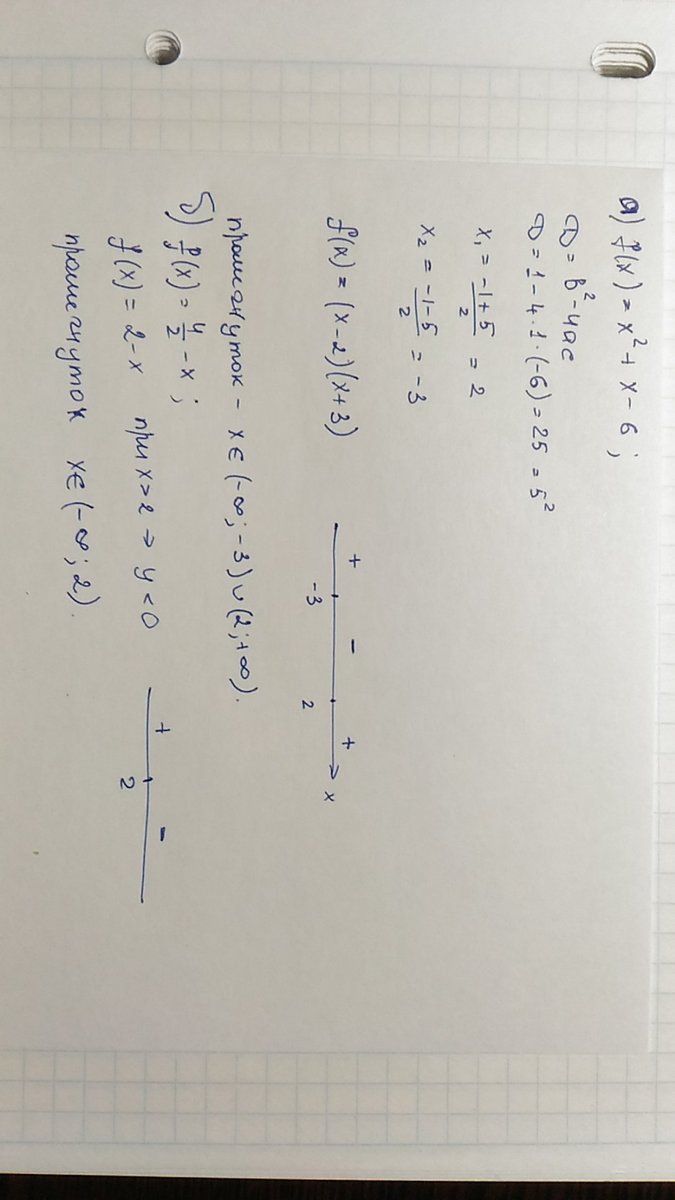 а) f(x) = x² + x - 6;
D = b² - 4ac
D = 1 - 4·1·(-6) = 25 = 5²
x₁ = (-1+5)/2 = 2
x₂ = (-1-5)/2 = -3
f(x) = (x-2)(x+3)
+ - +
-3 2 x
промежуток - x∈(-∞;-3)∪(2;+∞).
б) f(x) = 4/2 - x;
f(x) = 2-x при x>2 → y<0
+ -
2
промежуток x∈(-∞;2).